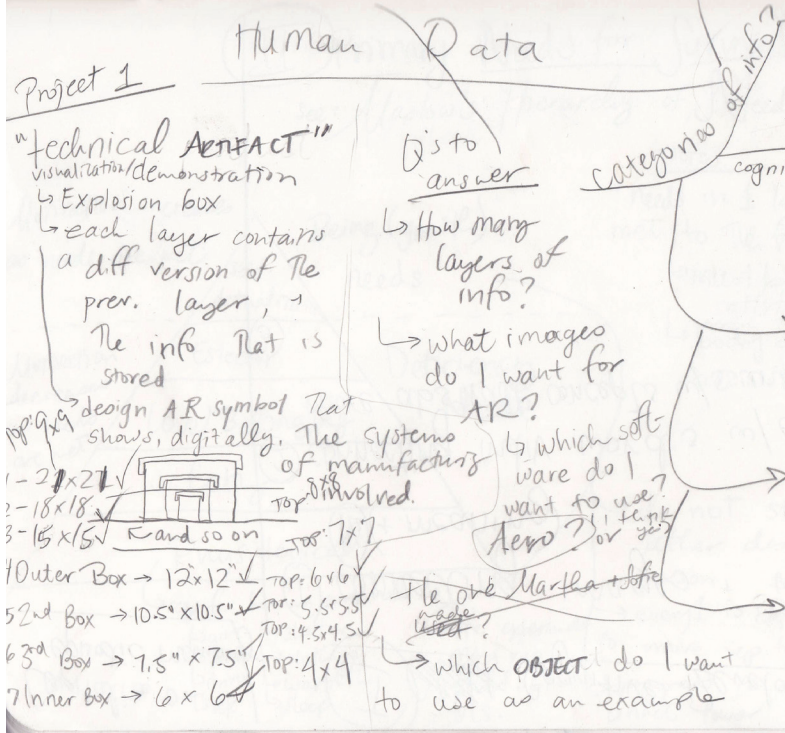 Human Data
Project 1
"technical ARTIFACT"
visualization/demonstration
↳ Explosion box
↳ each layer contains
a diff version of the
prev. layer, →
the info that is
stored
→ design AR symbol that
shows, digitally, the systems
of manufacturing
involved.
Top: 9x9
1 - 21x21 ✓
2 - 18x18 ✓
Top: 8x8
3 - 15x15 ✓
↸ and so on
Top: 7x7
4 Outer Box → 12"x12" ✓ Top: 6x6 ✓
5 2nd Box → 10.5"x10.5" ✓ Top: 5.5x5.5 ✓
Top: 4.5x4.5 ✓
6 3rd Box → 7.5" x 7.5" Top: 4x4
7 Inner Box → 6 x 6
Q's to
answer
↳ How many
layers of
info?
↳ what images
do I want for
AR?
↳ which soft-
ware do I
want to use?
Aero? or
the one Martha
made
used?
↳ which OBJECT do I want
to use as an example
categories of info?
cogni